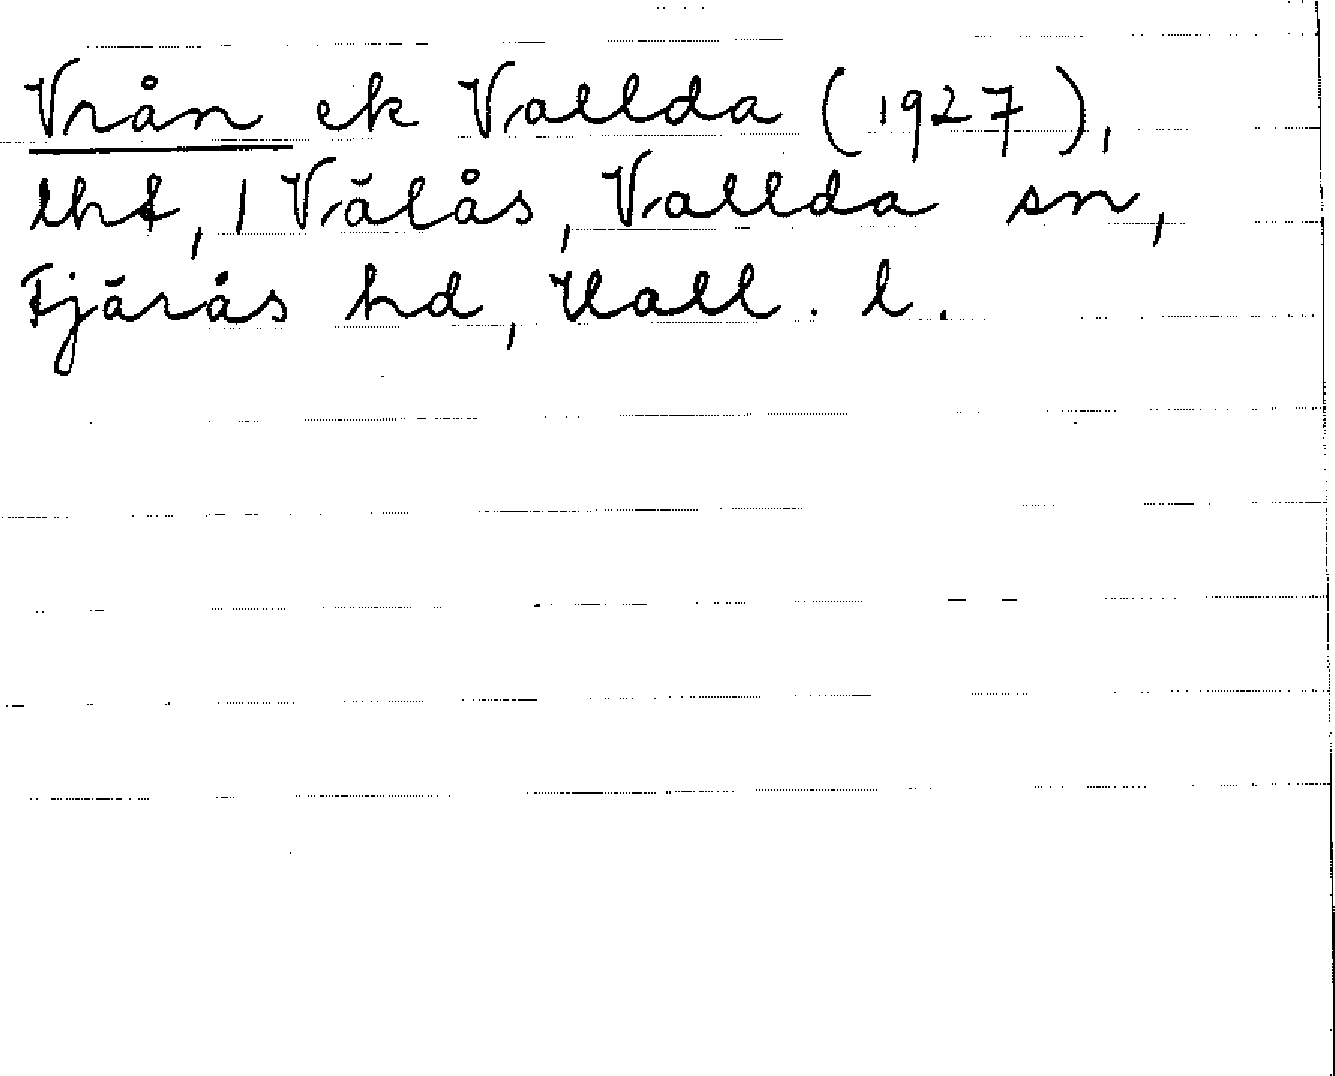 Vrån ek Vallda (1927),
lht, 1 Välås, Vallda sn,
Fjärås hd, Hall. l.